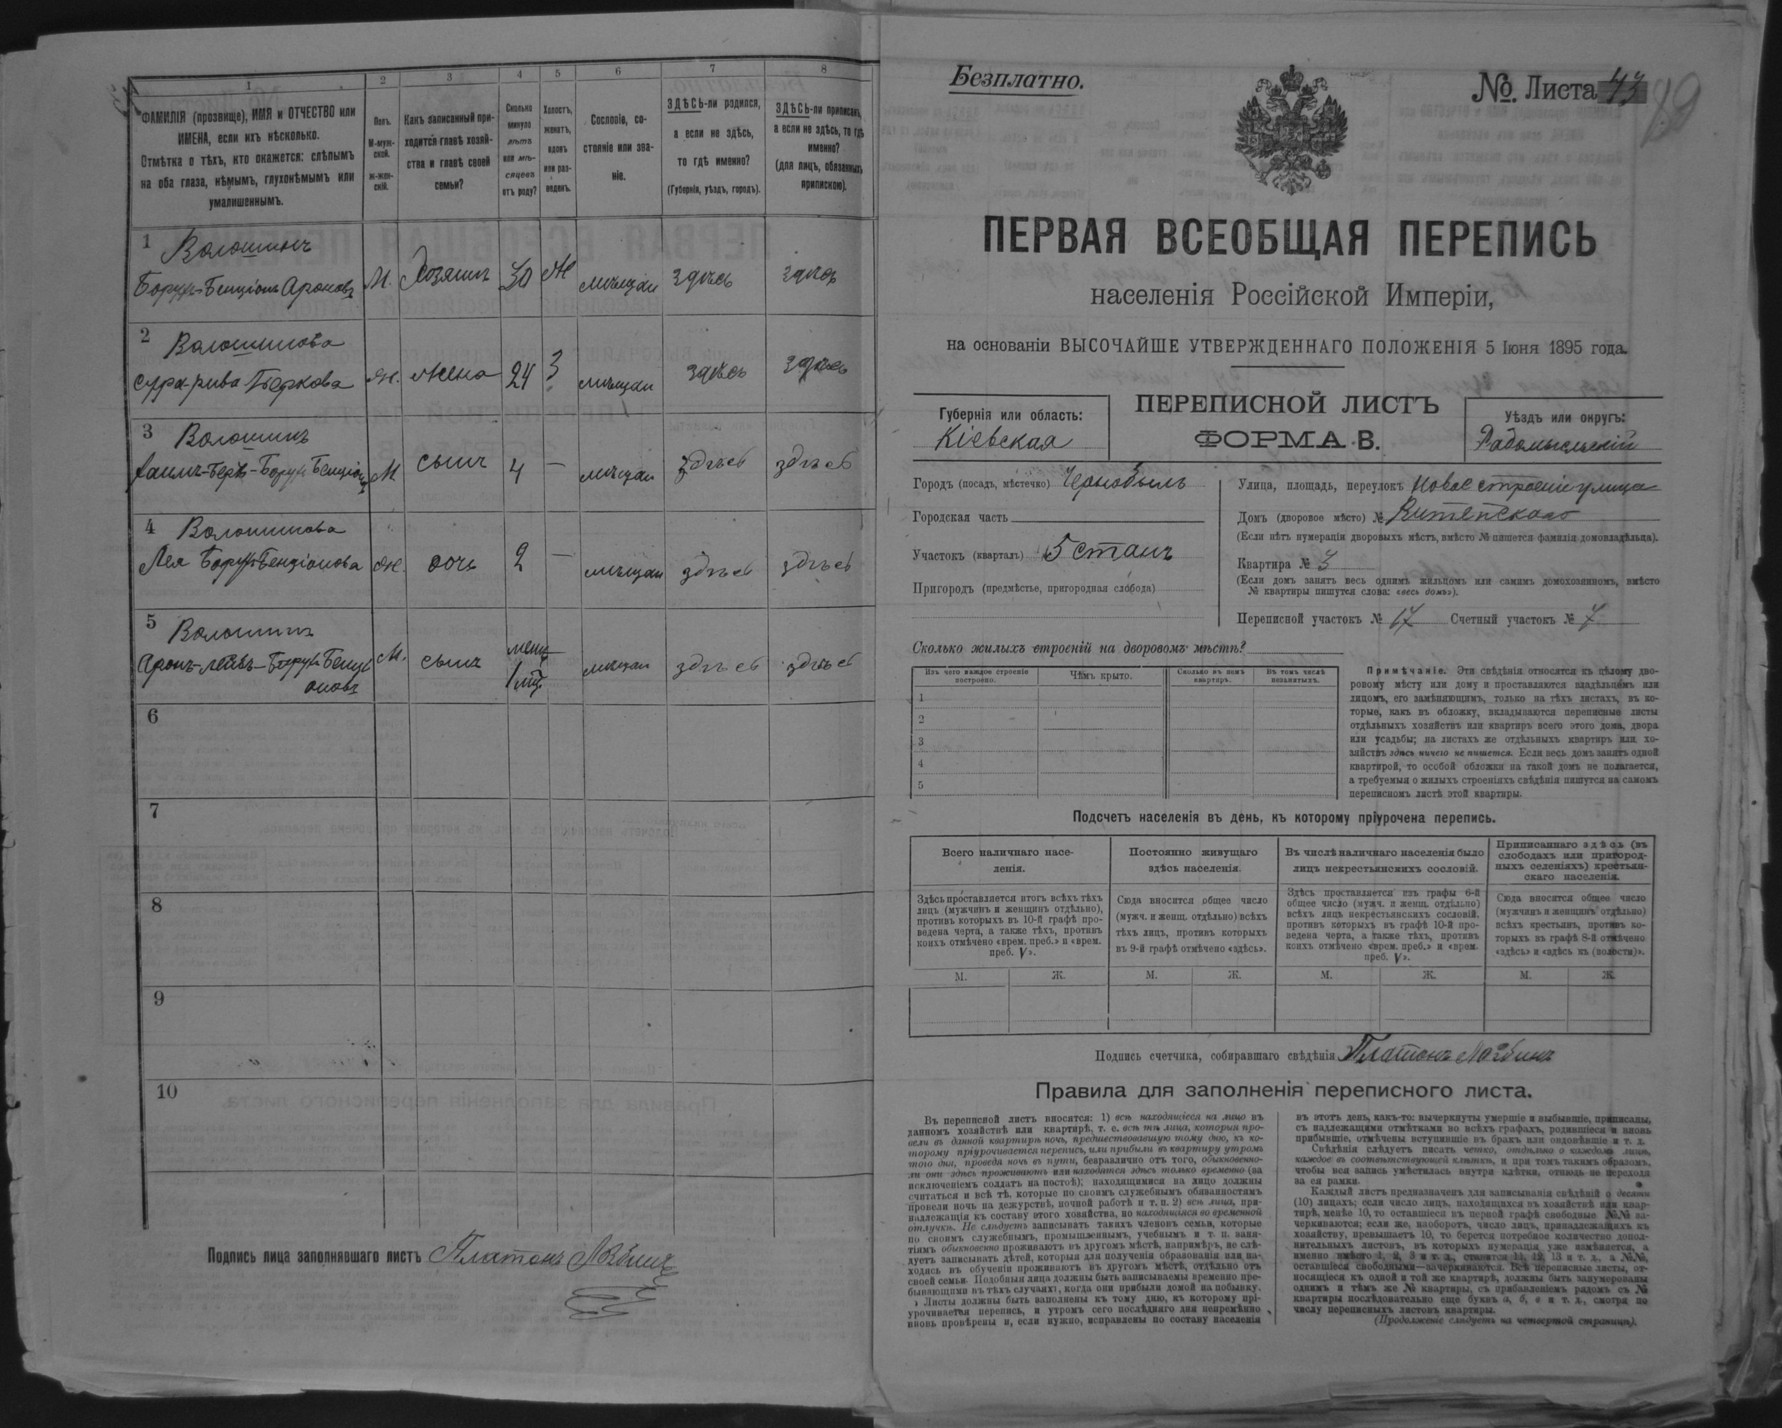 1
2
3
4
5
6
7
8
ФАМИЛІЯ (прозвище), ИМЯ и ОТЧЕСТВО или
ИМЕНА, если ихъ нѣсколько.
Отмѣтка о тѣхъ, кто окажется: слѣпымъ
на оба глаза, нѣмымъ, глухонѣмымъ или
умалишеннымъ.
Полъ.
М-муж-
ской.
Ж-жен-
скій.
Какъ записанный при-
ходится главѣ хозяй-
ства и главѣ своей
семьи?
Сколько
минуло
лѣтъ
или мѣ-
сяцевъ
отъ роду?
Холостъ,
женатъ,
вдовъ
или раз-
веденъ.
Сословіе, со-
стояніе или зва-
ніе.
ЗДѢСЬ-ли родился,
а если не здѣсь,
то гдѣ именно?
(Губернія, уѣздъ, городъ).
ЗДѢСЬ-ли приписанъ,
а если не здѣсь, то гдѣ
именно?
(для лицъ, обязанныхъ
припискою).
1 Волошинъ
Борухъ-Бенціонъ Ароновъ М. Хозяинъ 30 Ж мѣщан здѣсь здѣсь
2 Волошинова
Сура-рива Беркова Ж. жена 24 З мѣщан здѣсь здѣсь
3 Волошинъ
М сынъ 4 — мѣщан здѣсь здѣсь
4 Волошинова
Лея Борухъ-Бенціонова Ж. дочь 2 — мѣщан здѣсь здѣсь
5 Волошинъ
Аронъ-Лейбъ-Борухъ Бенці
оновъ М. сынъ 1 мѣщан здѣсь здѣсь
6
7
8
9
10
Подпись лица заполнявшаго листъ Платонъ
Безплатно.
№ Листа 43
ПЕРВАЯ ВСЕОБЩАЯ ПЕРЕПИСЬ
населенія Россійской Имперіи,
на основаніи ВЫСОЧАЙШЕ УТВЕРЖДЕННАГО ПОЛОЖЕНІЯ 5 Іюня 1895 года.
Губернія или область:
Кіевская
ПЕРЕПИСНОЙ ЛИСТЪ
ФОРМА В.
Уѣздъ или округъ:
Радомысльскій
Городъ (посадъ, мѣстечко) Чернобыль
Городская часть
Участокъ (кварталъ) 5 станъ
Пригородъ (предмѣстье, пригородная слобода)
Улица, площадь, переулокъ Новое строеніе улица
Домъ (дворовое мѣсто) № Витепскаго
(Если нѣтъ нумераціи дворовыхъ мѣстъ, вмѣсто № пишется фамилія домовладѣльца).
Квартира № 3
(Если домъ занятъ весь однимъ жильцомъ или самимъ домохозяиномъ, вмѣсто
№ квартиры пишутся слова: «весь домъ»).
Переписной участокъ № 17 Счетный участокъ № 7
Сколько жилыхъ строеній на дворовомъ мѣстѣ?
Изъ чего каждое строеніе
построено.
Чѣмъ крыто.
Сколько въ немъ
квартиръ.
Въ томъ числѣ
незанятыхъ.
1
2
3
4
5
Примѣчаніе. Эти свѣдѣнія относятся къ цѣлому дво-
ровому мѣсту или дому и проставляются владѣльцемъ или
лицомъ, его замѣняющимъ, только на тѣхъ листахъ, въ ко-
торые, какъ въ обложку, вкладываются переписные листы
отдѣльныхъ хозяйствъ или квартиръ всего этого дома, двора
или усадьбы; на листахъ же отдѣльныхъ квартиръ или хо-
зяйствъ здѣсь ничего не пишется. Если весь домъ занятъ одной
квартирой, то особой обложки на такой домъ не полагается,
а требуемыя о жилыхъ строеніяхъ свѣдѣнія пишутся на самомъ
переписномъ листѣ этой квартиры.
Подсчетъ населенія въ день, къ которому пріурочена перепись.
Всего наличнаго насе-
ленія.
Здѣсь проставляется итогъ всѣхъ тѣхъ
лицъ (мужчинъ и женщинъ отдѣльно),
противъ которыхъ въ 10-й графѣ про-
ведена черта, а также тѣхъ, противъ
коихъ отмѣчено «врем. преб.» и «врем.
преб. V».
Постоянно живущаго
здѣсь населенія.
Сюда вносится общее число
(мужч. и женщ. отдѣльно) всѣхъ
тѣхъ лицъ, противъ которыхъ
въ 9-й графѣ отмѣчено «здѣсь».
Въ числѣ наличнаго населенія было
лицъ некрестьянскихъ сословій.
Здѣсь проставляется изъ графы 6-й
общее число (мужч. и женщ. отдѣльно)
всѣхъ лицъ некрестьянскихъ сословій,
противъ которыхъ въ графѣ 10-й про-
ведена черта, а также тѣхъ, противъ
коихъ отмѣчено «врем. преб.» и «врем.
преб. V».
Приписаннаго здѣсь (въ
слободахъ или пригород-
ныхъ селеніяхъ) крестьян-
скаго населенія.
Сюда вносится общее число
(мужчинъ и женщинъ отдѣльно)
всѣхъ крестьянъ, противъ ко-
торыхъ въ графѣ 8-й отмѣчено
«здѣсь» и «здѣсь къ (волости)».
М. Ж. М. Ж. М. Ж. М. Ж.
Подпись счетчика, собиравшаго свѣдѣнія Платонъ
Правила для заполненія переписного листа.
Въ переписной листъ вносятся: 1) всѣ находящіеся на лицо въ
данномъ хозяйствѣ или квартирѣ, т. е. всѣ тѣ лица, которыя про-
вели въ данной квартирѣ ночь, предшествовавшую тому дню, къ ко-
торому пріурочивается перепись, или прибыли въ квартиру утромъ
того дня, проведя ночь въ пути, безразлично отъ того, обыкновенно-
ли они здѣсь проживаютъ или находятся здѣсь только временно (за
исключеніемъ солдатъ на постоѣ); находящимися на лицо должны
считаться и всѣ тѣ, которые по своимъ служебнымъ обязанностямъ
провели ночь на дежурствѣ, ночной работѣ и т. п. 2) всѣ лица, при-
надлежащія къ составу этого хозяйства, но находящіяся во временной
отлучкѣ. Не слѣдуетъ записывать такихъ членовъ семьи, которые
по своимъ служебнымъ, промышленнымъ, учебнымъ и т. п. заня-
тіямъ обыкновенно проживаютъ въ другомъ мѣстѣ, напримѣръ, не слѣ-
дуетъ записывать дѣтей, которыя для полученія образованія или на-
ходясь въ обученіи проживаютъ въ другомъ мѣстѣ, отдѣльно отъ
своей семьи. Подобныя лица должны быть записываемы временно пре-
бывающими въ тѣхъ случаяхъ, когда они прибыли домой на побывку.
Листы должны быть заполнены къ тому дню, къ которому прі-
урочивается перепись, и утромъ сего послѣдняго дня непремѣнно
вновь провѣрены и, если нужно, исправлены по составу населенія
въ этотъ день, какъ-то: вычеркнуты умершіе и выбывшіе, приписаны,
съ надлежащими отмѣтками во всѣхъ графахъ, родившіеся и вновь
прибывшіе, отмѣчены вступившіе въ бракъ или овдовѣвшіе и т. д.
Свѣдѣнія слѣдуетъ писать четко, отдѣльно о каждомъ лицѣ,
каждое въ соотвѣтствующей клѣткѣ, и при томъ такимъ образомъ,
чтобы вся запись умѣстилась внутри клѣтки, отнюдь не переходя
за ея рамки.
Каждый листъ предназначенъ для записыванія свѣдѣній о десяти
(10) лицахъ; если число лицъ, находящихся въ хозяйствѣ или квар-
тирѣ, менѣе 10, то оставшіеся въ первой графѣ свободные №№ за-
черкиваются; если же, наоборотъ, число лицъ, принадлежащихъ къ
хозяйству, превышаетъ 10, то берется потребное количество допол-
нительныхъ листовъ, въ которыхъ нумерація уже измѣняется, а
именно вмѣсто 1, 2, 3 и т. д., ставится 11, 12, 13 и т. д., а №№,
оставшіеся свободными—зачеркиваются. Всѣ переписные листы, от-
носящіеся къ одной и той же квартирѣ, должны быть занумерованы
однимъ и тѣмъ же № квартиры, съ прибавленіемъ рядомъ съ №
квартиры послѣдовательно еще буквъ а, б, в и т. д., смотря по
числу переписныхъ листовъ квартиры.
(Продолженіе слѣдуетъ на четвертой страницѣ).